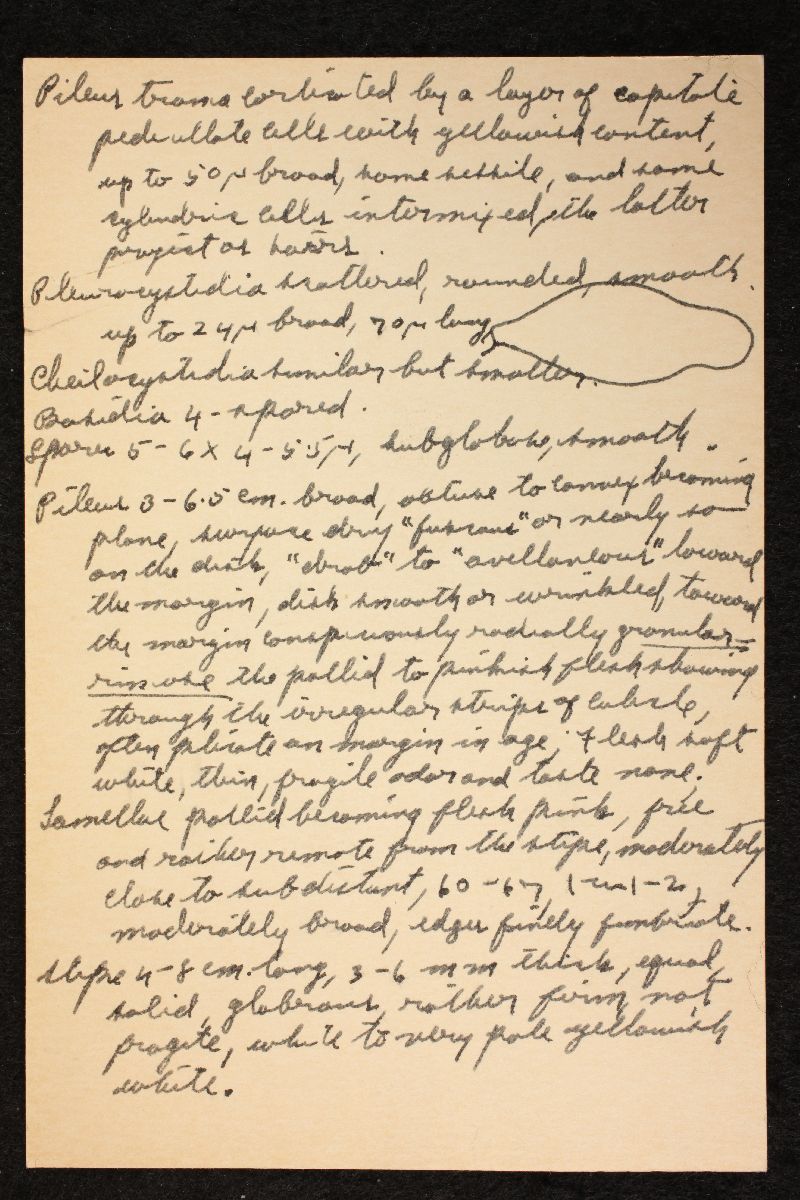 Pileus trama corticated by a layer of capitate
pedicellate cells with yellowish content,
up to 50μ broad, some sessile, and some
cylindric cells intermixed, the latter
project as hairs.
Pleurocystidia scattered, rounded, smooth.
up to 24μ broad, 70μ long
Cheilocystidia similar but smaller.
Basidia 4-spored.
Spores 5-6 x 4-5.5μ, subglobose, smooth.
Pileus 3-6.5 cm. broad, obtuse to convex becoming
plane, surface dry "fuscous" or nearly so
on the disk, "drab" to "avellaneous" toward
the margin, disk smooth or wrinkled, toward
the margin conspicuously radially granular-
rimose the pallid to pinkish flesh showing
through the irregular strips of cuticle,
often plicate on margin in age; flesh soft
white, thin, fragile odor and taste none.
Lamellae pallid becoming flesh pink, free
and rather remote from the stipe, moderately
close to subdistant, 60-67,
moderately broad, edges finely fimbriate.
Stipe 4-8 cm. long, 3-6 mm thick, equal,
solid, glabrous, rather firm, not
fragile, white to very pale yellowish
white.